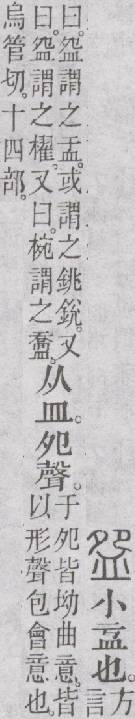 盌小盂也。方言
曰。盌謂之盂。或謂之銚銳。又
曰。盌謂之櫂。又曰。椀謂之
从皿。夗聲。
于夗皆坳曲意。皆
以形聲包會意也。
烏管切。十四部。